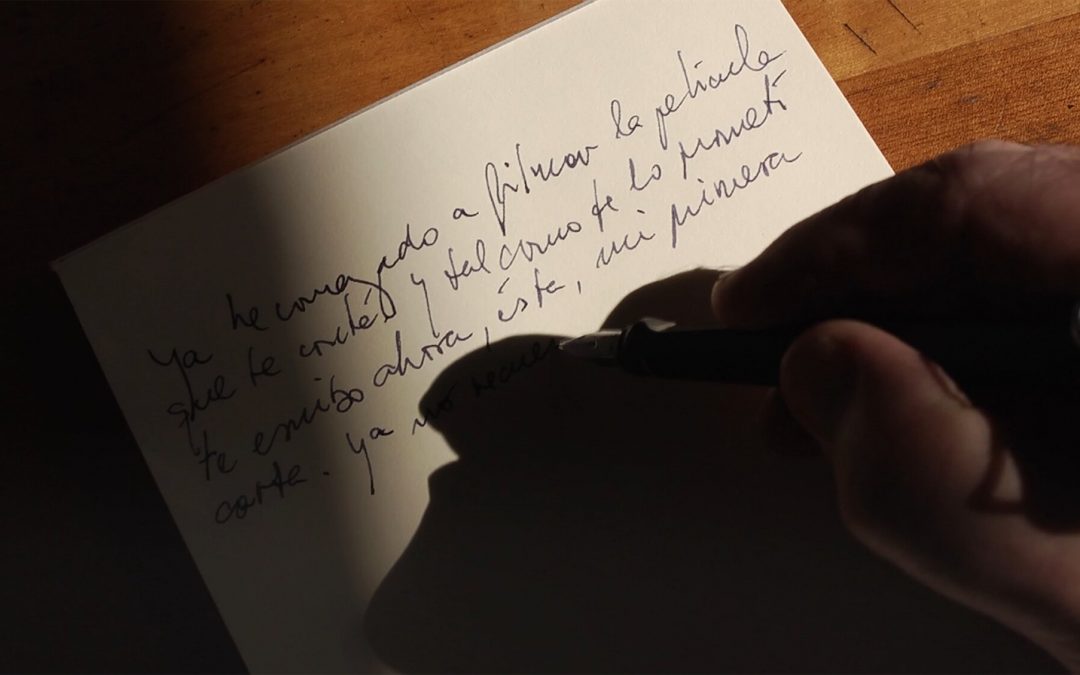 Ya he comenzado a filmar la película
que te conté y tal como te lo prometí
te escribo ahora, ésta, mi primera
carta. Ya no recue